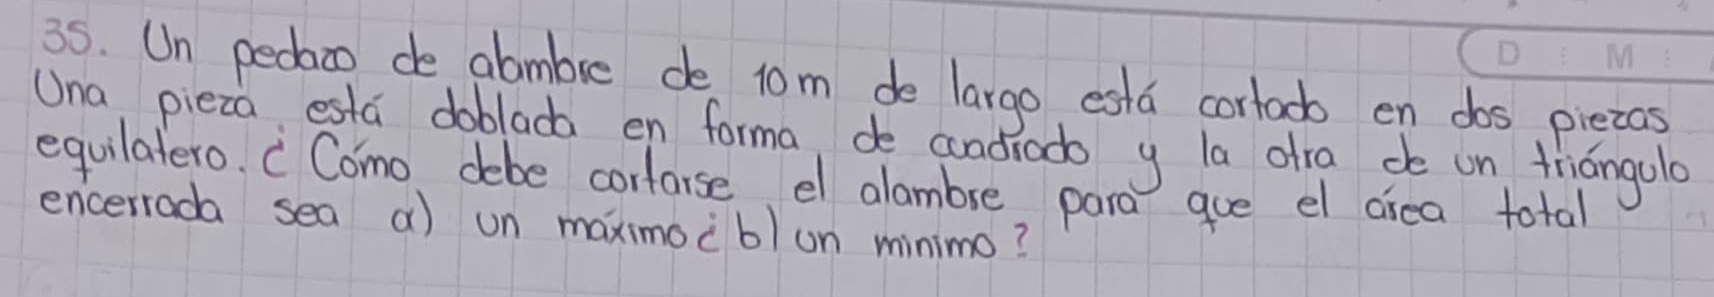 D : M :
35. Un pedazo de alambre de 10m de largo está cortado en dos piezas
Una pieza está doblada en forma de cuadrado y la otra de un triángulo
equilatero. ¿Cómo debe cortarse el alambre para que el área total
encerrada sea a) un máximo ¿ b) un minimo?